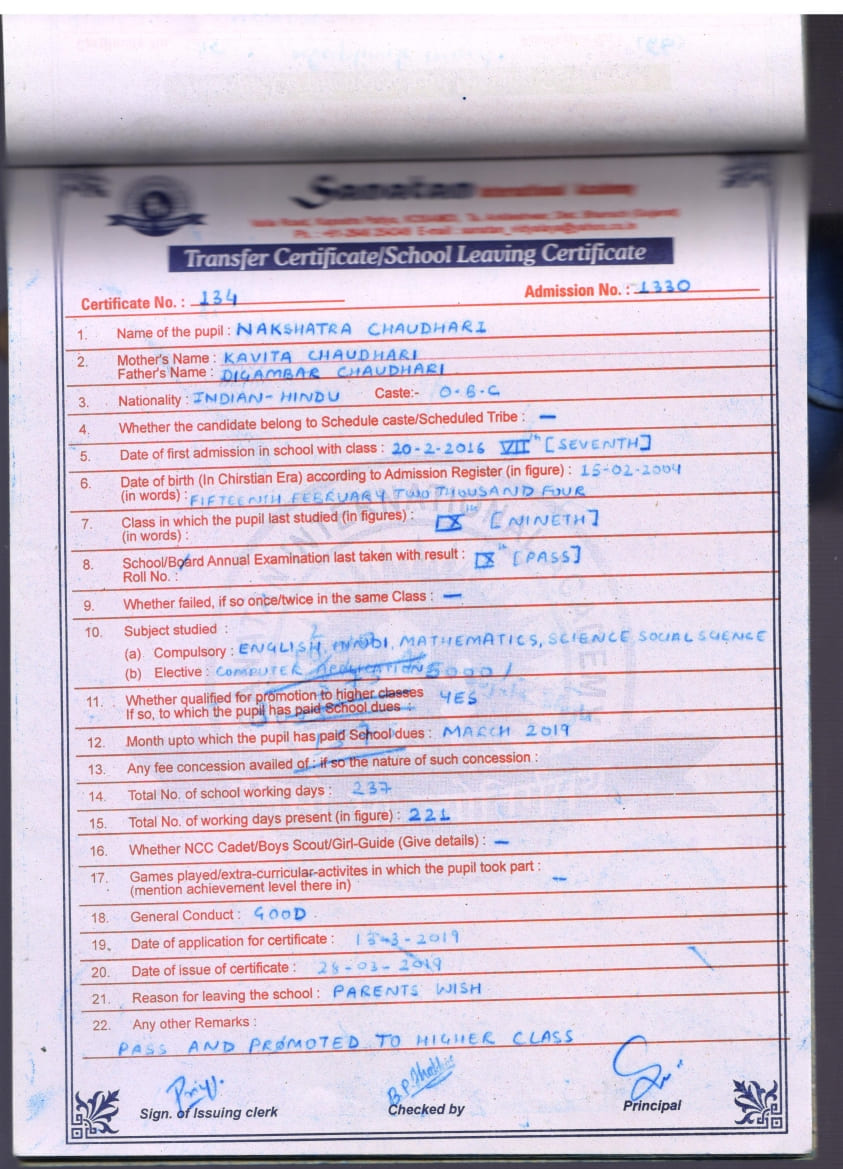 Sanatan International Academy
Transfer Certificate/School Leaving Certificate
Certificate No. : 134
Admission No. : 1330
1. Name of the pupil : NAKSHATRA CHAUDHARI
2. Mother's Name : KAVITA CHAUDHARI
Father's Name : DIGAMBAR CHAUDHARI
3. Nationality : INDIAN-HINDU Caste:- O.B.C
4. Whether the candidate belong to Schedule caste/Scheduled Tribe : —
5. Date of first admission in school with class : 20-2-2016 VII th [SEVENTH]
6. Date of birth (In Chirstian Era) according to Admission Register (in figure) : 15-02-2004
(in words) : FIFTEENTH FEBRUARY TWO THOUSAND FOUR
7. Class in which the pupil last studied (in figures) : IX th [NINETH]
(in words) :
8. School/Board Annual Examination last taken with result : IX th [PASS]
Roll No. :
9. Whether failed, if so once/twice in the same Class : —
10. Subject studied :
(a) Compulsory : ENGLISH, HINDI, MATHEMATICS, SCIENCE, SOCIAL SCIENCE
(b) Elective : COMPUTER APPLICATION
11. Whether qualified for promotion to higher classes YES
If so, to which the pupil has paid School dues :
12. Month upto which the pupil has paid School dues : MARCH 2019
13. Any fee concession availed of : if so the nature of such concession :
14. Total No. of school working days : 237
15. Total No. of working days present (in figure) : 221
16. Whether NCC Cadet/Boys Scout/Girl-Guide (Give details) : —
17. Games played/extra-curricular-activites in which the pupil took part : —
(mention achievement level there in)
18. General Conduct : GOOD
19. Date of application for certificate : -3-2019
20. Date of issue of certificate : 28-03-2019
21. Reason for leaving the school : PARENTS WISH
22. Any other Remarks :
PASS AND PROMOTED TO HIGHER CLASS
Sign. of Issuing clerk
Checked by
Principal